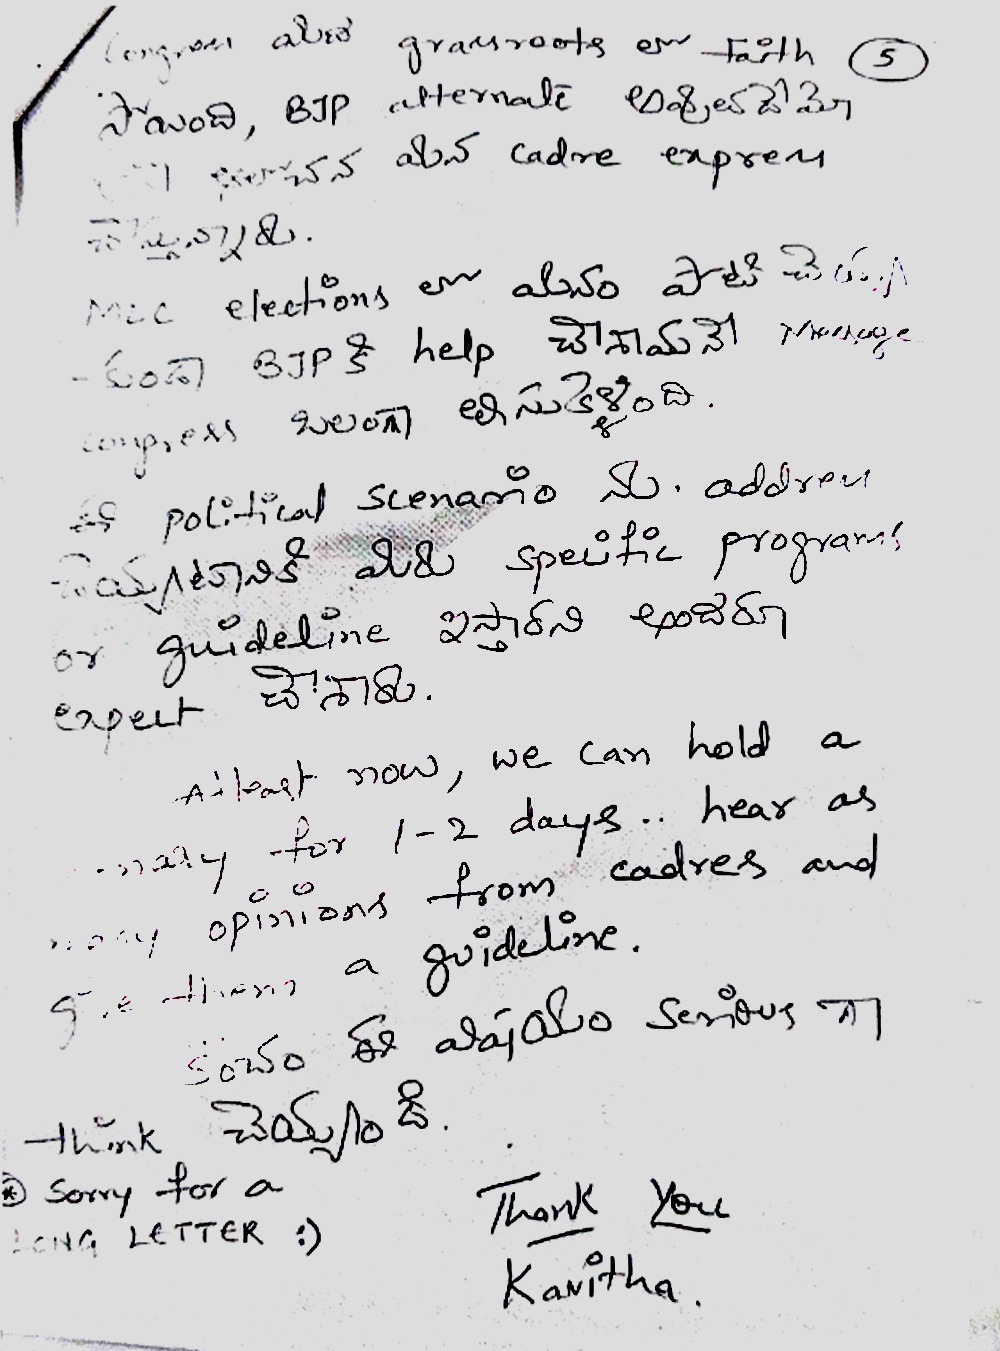 Congress మీద grassroots లో faith 5
పోయింది, BJP alternate అవుతుందేమో
ఆలోచన మన cadre express
చేస్తున్నారు.
MLC elections లో మనం పోటీ చెయ్య
-కుండా BJPకి help చేశామనే message
congress బలంగా తీసుకెళ్లింది.
ఈ political scenario ను address
చెయ్యటానికి మీరు specific programs
or guideline ఇస్తారని అందరూ
expect చేశారు.
Atleast now, we can hold a
for 1-2 days.. hear as
many opinions from cadres and
give them a guideline.
కొంచం ఈ విషయం serious గా
think చెయ్యండి.
* Sorry for a
LONG LETTER :)
Thank You
Kavitha.